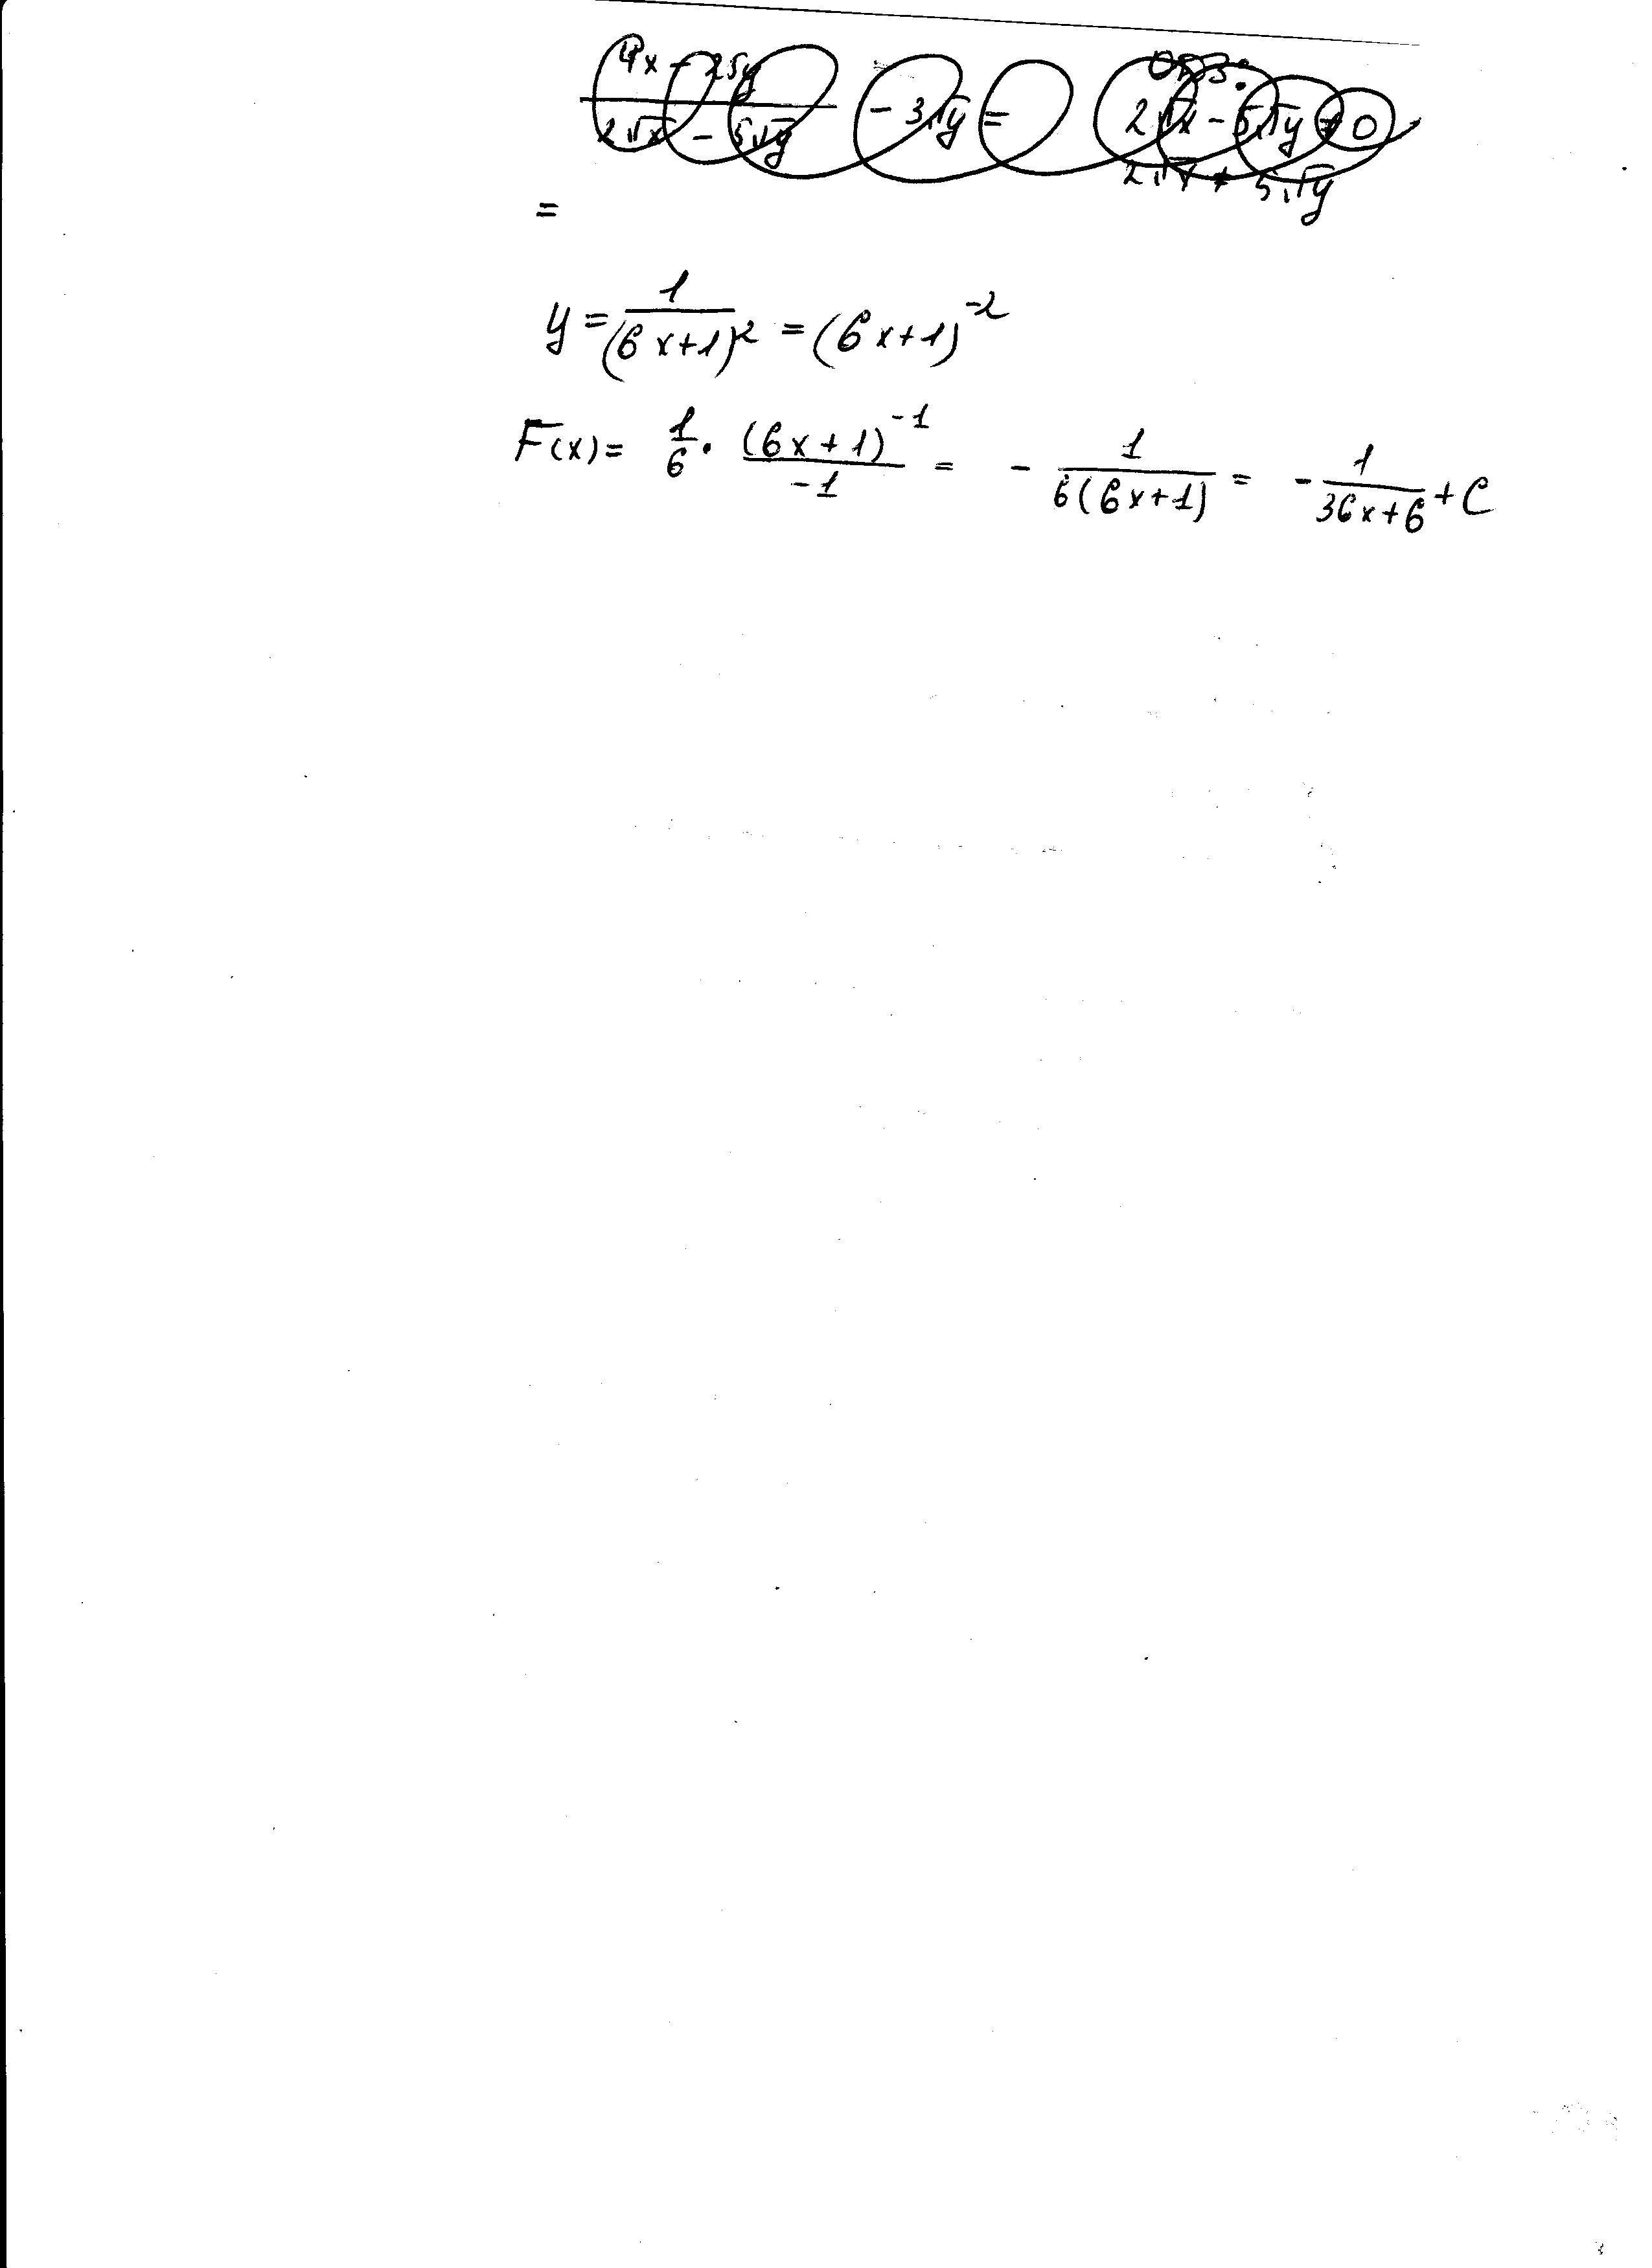 ОДЗ:
(4x - 25y)/(2√x - 5√y) - 3√y = 2√x - 5√y ≠ 0
2√x ≠ 5√y
=
y = 1/(6x+1)² = (6x+1)⁻²
F(x) = 1/6 · (6x+1)⁻¹/-1 = - 1/(6(6x+1)) = - 1/(36x+6) + C